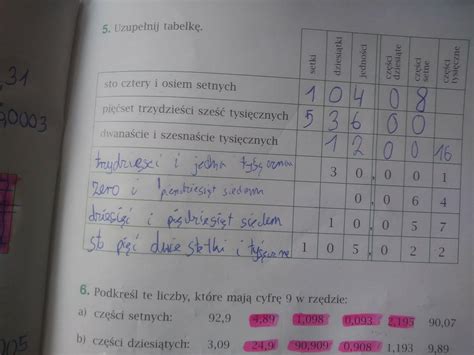 31
0,0003
5. Uzupełnij tabelkę.
setki dziesiątki jedności części dziesiąte części setne części tysięczne
sto cztery i osiem setnych 1 0 4 0 8
pięćset trzydzieści sześć tysięcznych 5 3 6 0 0
dwanaście i szesnaście tysięcznych 1 2 0 0 16
trzydzieści i jedna 3 0 , 0 0 1
zero i 0 , 0 6 4
dziesięć i piędziesiąt siedem 1 0 , 0 5 7
sto pięć dwie setki i 1 0 5 , 0 2 2
6. Podkreśl te liczby, które mają cyfrę 9 w rzędzie:
a) części setnych: 92,9 4,89 1,098 0,093 2,195 90,07
b) części dziesiątych: 3,09 24,9 90,909 0,908 1,193 9,89